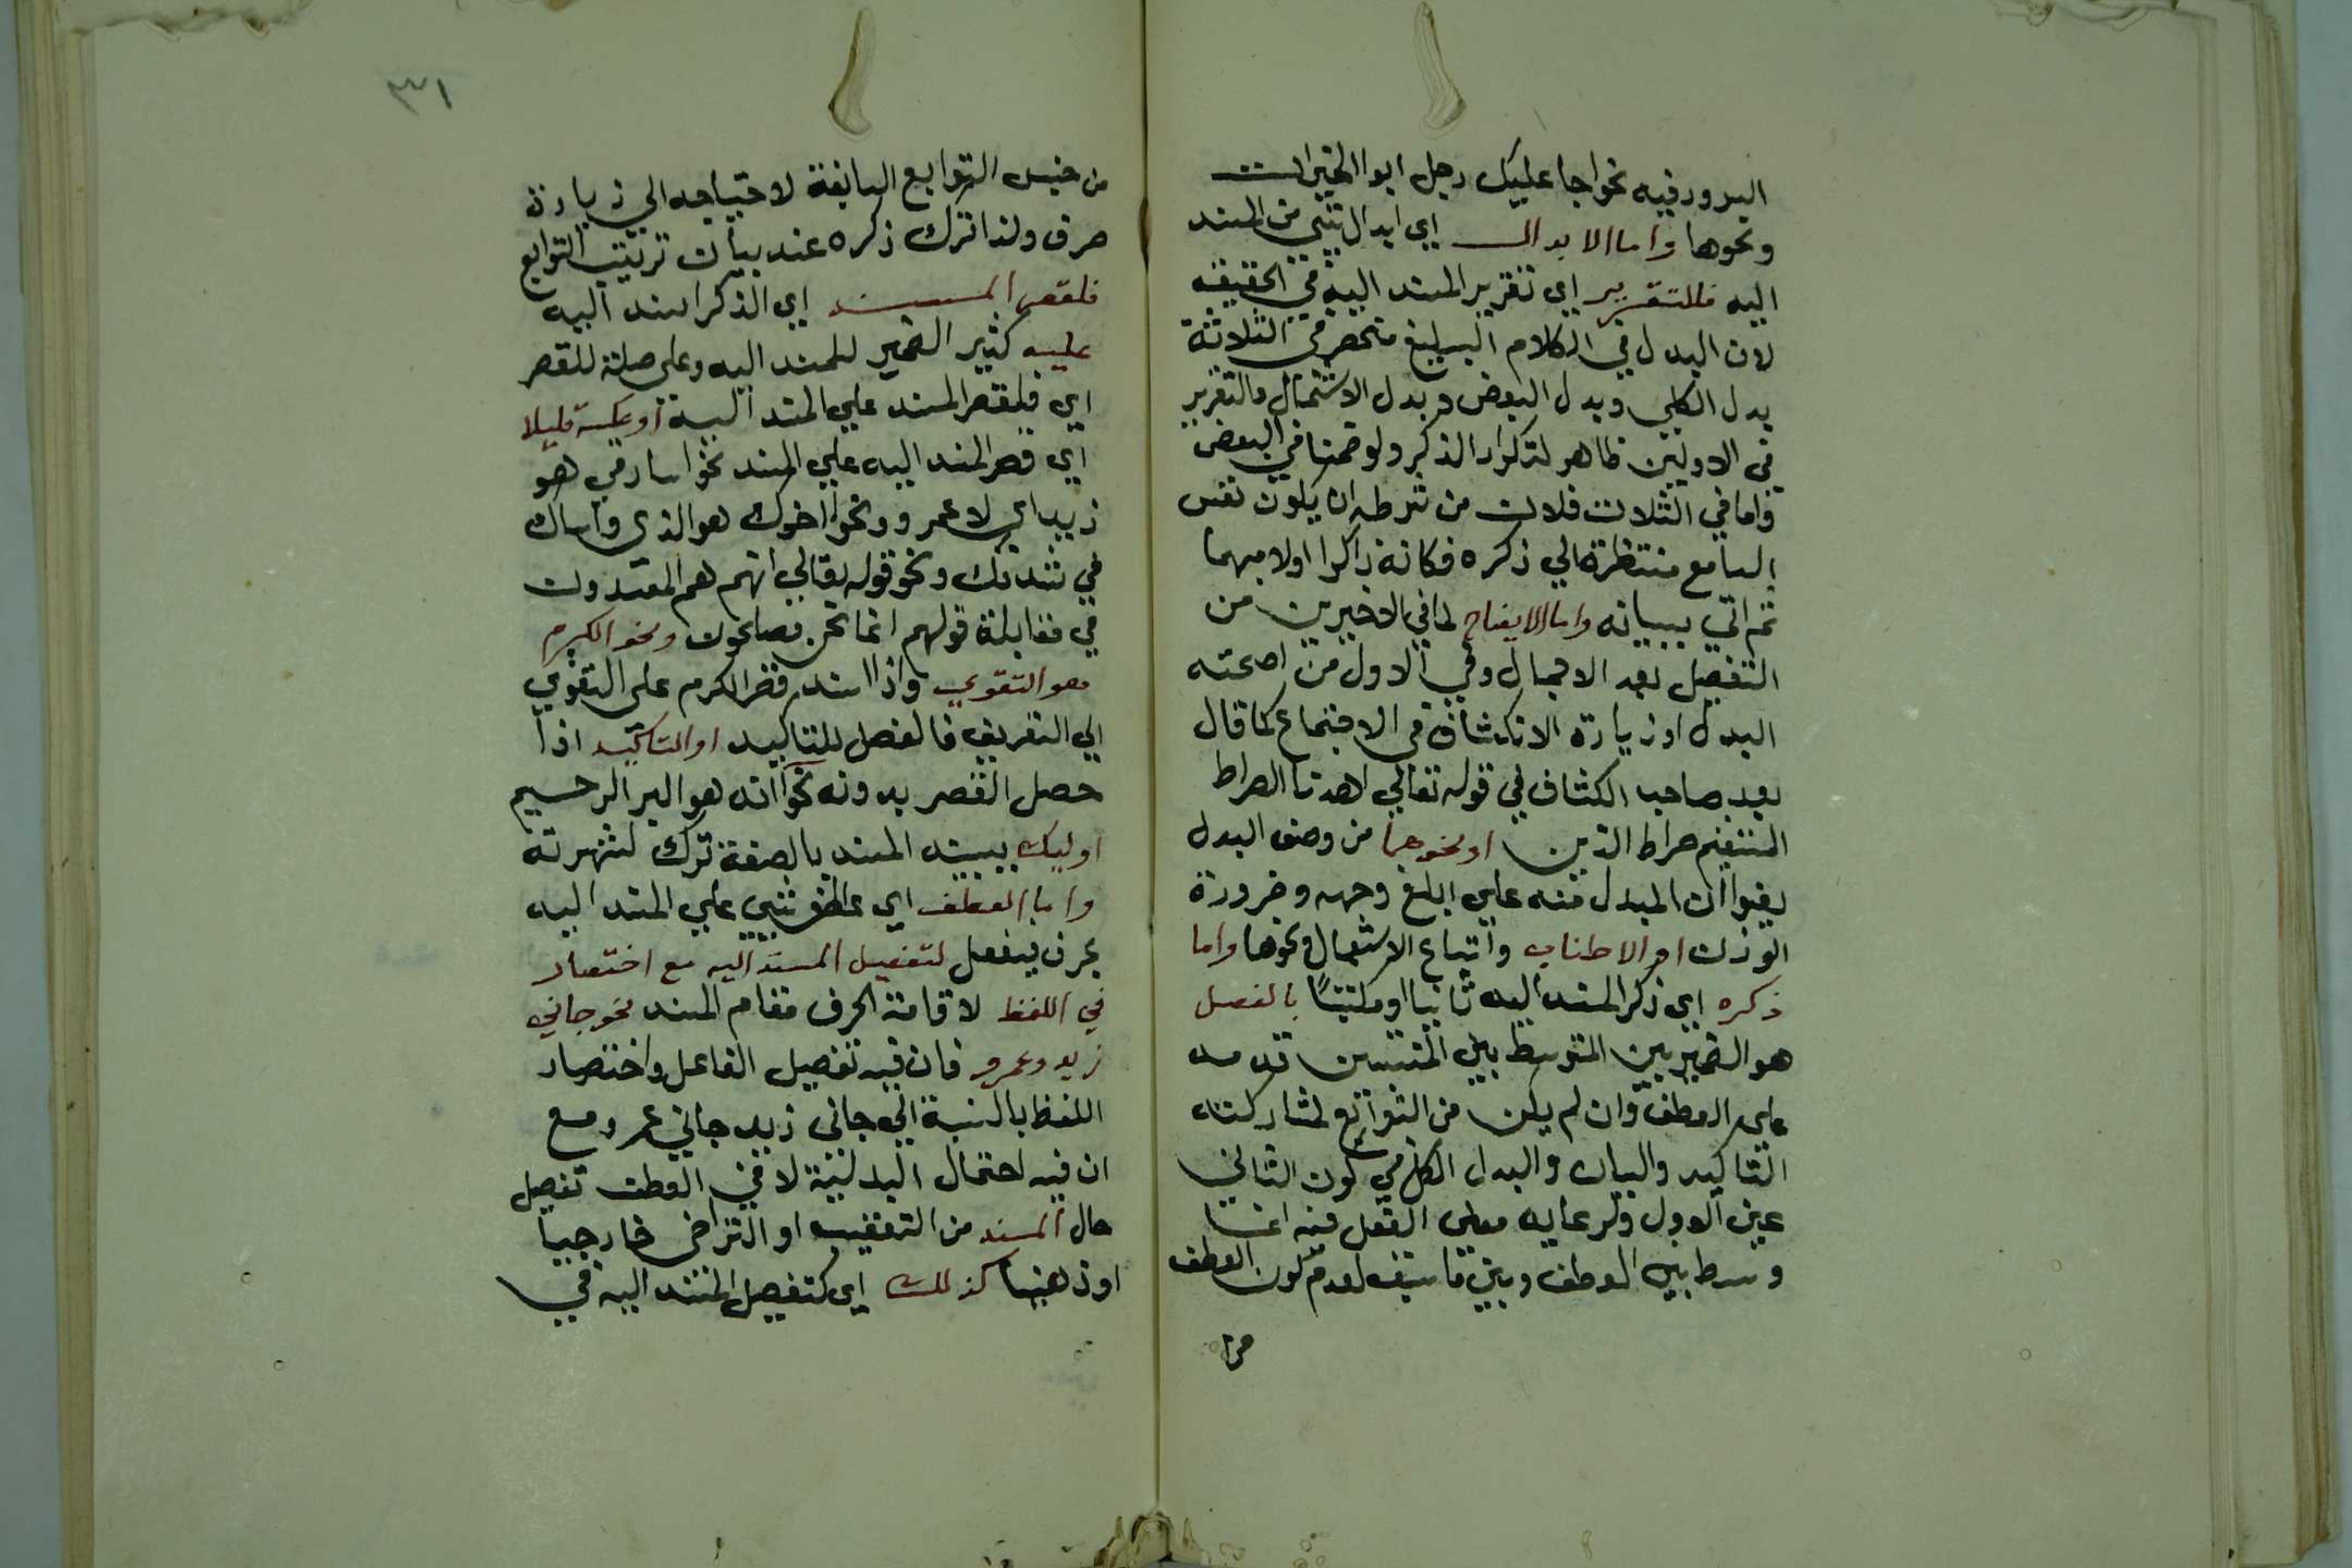 البرور فيه نحو اجا عليك رجل ابوا الخيرات
ونحوها واما الابدال اي ابدال شي من المسند
اليه فللتقرير اي تقرير المسند اليه في الحقيقة
لان البدل في الكلام البليغ منحصر في الثلاثة
بدل الكل وبدل البعض وبدل الاشتمال والتقرير
في الاولين ظاهر لتكرار الذكر ولو ضمنا في البعض
واما في الثلاث فلان من شرطه ان يكون نفس
السامع منتظرة الي ذكره فكانه ذاكرا اولا مبهما
ثم اتي ببيانه واما الايضاح لما في الاخيرين من
التفصيل بعد الاجمال وفي الاول من
البدل او زيادة الانكشاف في الاجتماع كما قال
بعد صاحب الكشاف في قوله تعالي اهدنا الصراط
المستقيم صراط الذين او نحوهما من وصف البدل
ان المبدل منه علي ابلغ وجه وضرورة
الوزن او الاطناب واتباع الاستعمال ونحوها واما
ذكره اي ذكر المسند اليه ثانيا او ملتبسًا بالفصل
هو الضمير بين المتوسط بين قدمه
على العطف وان لم يكن من التوابع لمشاركته
التاكيد والبيان والبدل الكل في كون الثاني
عين الاول ولرعايه معني الفعل فيه
وسط بين العطف وبين ما سبق لعدم كون العطف
من
٣١
من جنس التوابع السابقة لاحتياجه الي زيادة
حرف ولذا ترك ذكره عند بيان ترتيب التوابع
فلقصر المسند اي الذكر المسند اليه
عليه كثير الضمير للمسند اليه وعلى صلة للقصر
اي فلقصر المسند علي المسند اليه او عكسه قليلا
اي قصر المسند اليه علي المسند نحو هو
زيد اي لا عمرو ونحو اخوك هو الذي واساك
في شدتك ونحو قوله تعالي انهم هم المفسدون
في مقابلة قولهم انما نحن مصلحون ونحو الكرم
هو التقوي واذا اسند قصر الكرم على التقوي
الي التعريف فالفصل للتاكيد او التاكيد اذا
حصل القصر بدونه نحو انه هو البر الرحيم
اوليك المسند بالصفة ترك لشهرته
واما العطف اي عطف شيي علي المسند اليه
بحرف فيفعل لتفصيل المسند اليه مع اختصار
في اللفظ لاقامة الحرف مقام المسند نحو جاني
زيد وعمرو فان فيه تفصيل الفاعل واختصار
اللفظ بالنسبة الي جاني زيد جاني عمرو مع
ان فيه احتمال البدلية لا في العطف تفصيل
حال المسند من التعقيب او التراخي خارجيا
او ذهنيا كذلك اي كتفصيل المسند اليه في